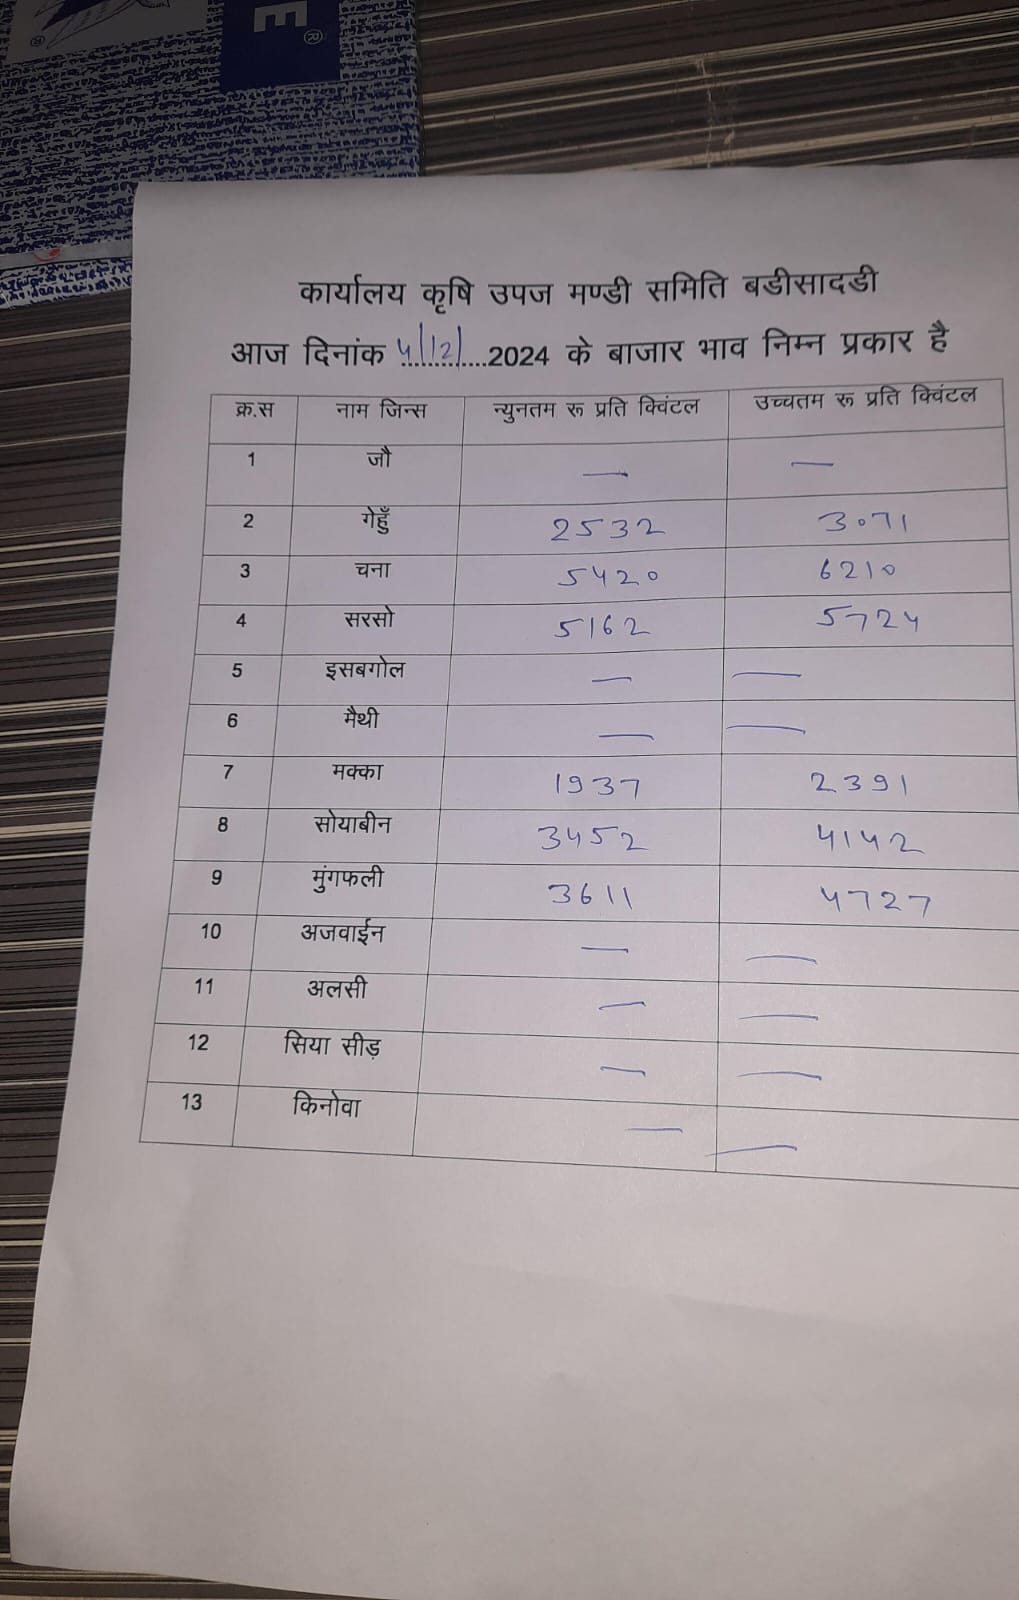 E
R
R
कार्यालय कृषि उपज मण्डी समिति बडीसादडी
आज दिनांक 4/12/....2024 के बाजार भाव निम्न प्रकार है
क्र.स नाम जिन्स न्युनतम रू प्रति क्विंटल उच्चतम रू प्रति क्विंटल
1 जौ — —
2 गेहुँ 2532 3071
3 चना 5420 6210
4 सरसो 5162 5724
5 इसबगोल — —
6 मैथी — —
7 मक्का 1937 2391
8 सोयाबीन 3452 4142
9 मुंगफली 3611 4727
10 अजवाईन — —
11 अलसी — —
12 सिया सीड़ — —
13 किनोवा — —